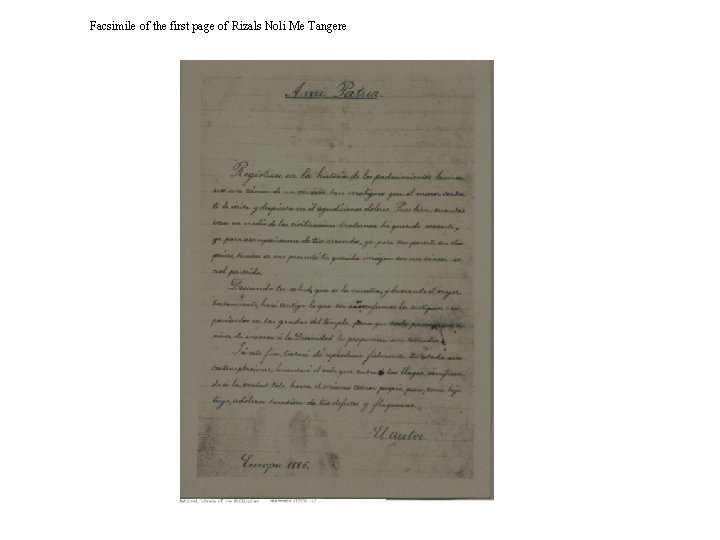 Facsimile of the first page of Rizals Noli Me Tangere
A mi Patria.
Regístrase en la historia de los padecimientos human
un cáncer de un carácter tan maligno que el menor contac
to le irrita y despierta en él agudísimos dolores. Pues bien, cuantas
veces en medio de las civilizaciones modernas he querido evocarte,
ya para acompañarme de tus recuerdos, ya para compararte con otros
países, tantas se me presentó tu querida imagen con un cáncer so
cial parecido.
Deseando tu salud, que es la nuestra, y buscando el mejor
tratamiento, haré contigo lo que con sus enfermos los antiguos: ex
poníanlos en las gradas del templo, para que
de invocar á la Divinidad le propusiera un remedio.
Y á este fin, trataré de reproducir fielmente tu estado sin
contemplaciones; levantaré el velo que tus llagas, sacrifican
do á la verdad todo, hasta el mismo amor propio, pues, como hijo
tuyo, adolezco también de tus defectos y flaquezas.
El autor
Europa 1886.
National Library of the Philippines